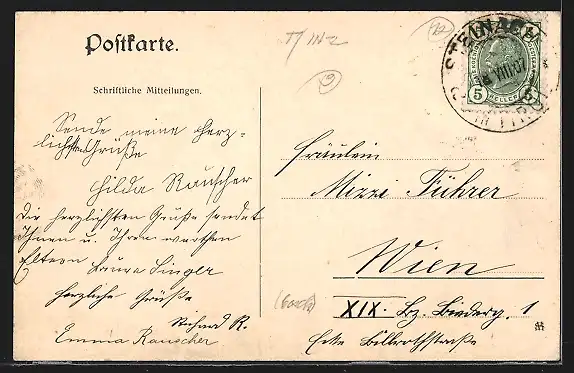 Postkarte.
Schriftliche Mitteilungen.
Sende meine herz-
lichsten Grüße
Hilda Rauscher
Die herzlichsten Grüße sendet
Ihnen u. Ihren werthen
Eltern Laura Singer
Herzliche Grüße
Richard R.
Emma Rauscher
STEINACH
5
HELLER
5
Fräulein
Mizzi Führer
Wien
XIX. Bz. 1
Ecke Billrothstraße